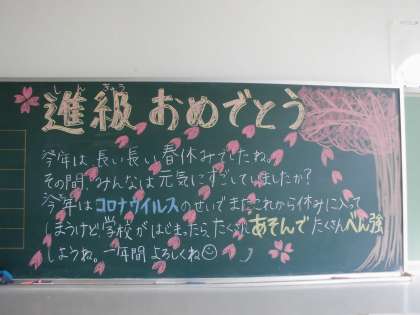 しんきゅう
進級おめでとう
今年は、長い長い春休みでしたね。
その間、みんなは元気にすごしていましたか?
今年はコロナウイルスのせいでまたこれから休みに入って
しまうけど、学校がはじまったら、たくさんあそんでたくさんべん強
しようね。一年間よろしくね